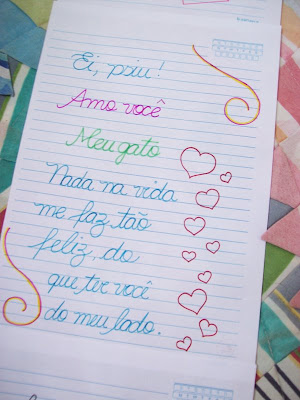 Ei, psiu!
Amo você
Meu gato
Nada na vida
me faz tão
feliz, do
que ter você
do meu lado.